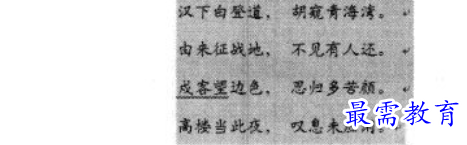 汉下白登道，胡窥青海湾。
由来征战地，不见有人还。
戍客望边色，思归多苦颜。
高楼当此夜，叹息未
最需教育